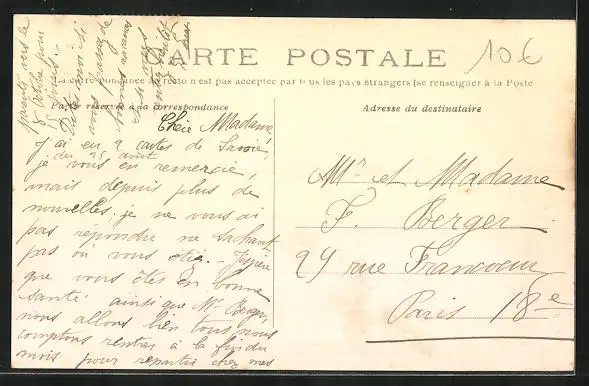 CARTE POSTALE
10€
La correspondance au recto n'est pas acceptée par tous les pays étrangers (se renseigner à la Poste
Partie réservée à la correspondance
Adresse du destinataire
Chère Madame
J'ai eu 2 cartes de Savoie,
du 25 août
je vous en remercie,
mais depuis plus de
nouvelles, je ne vous ai
pas répondu ne sachant
pas où vous étiez. - J'espère
que vous êtes en bonne
santé ainsi que Mr Berger
nous allons bien tous, nous
comptons rentrer à la fin du
mois pour repartir chez mes
parents vers le
8 octobre pour
Dites moi si
vous
bonnes vacances
Mr et Madame
F. Berger
29 rue Francoeur
Paris 18e